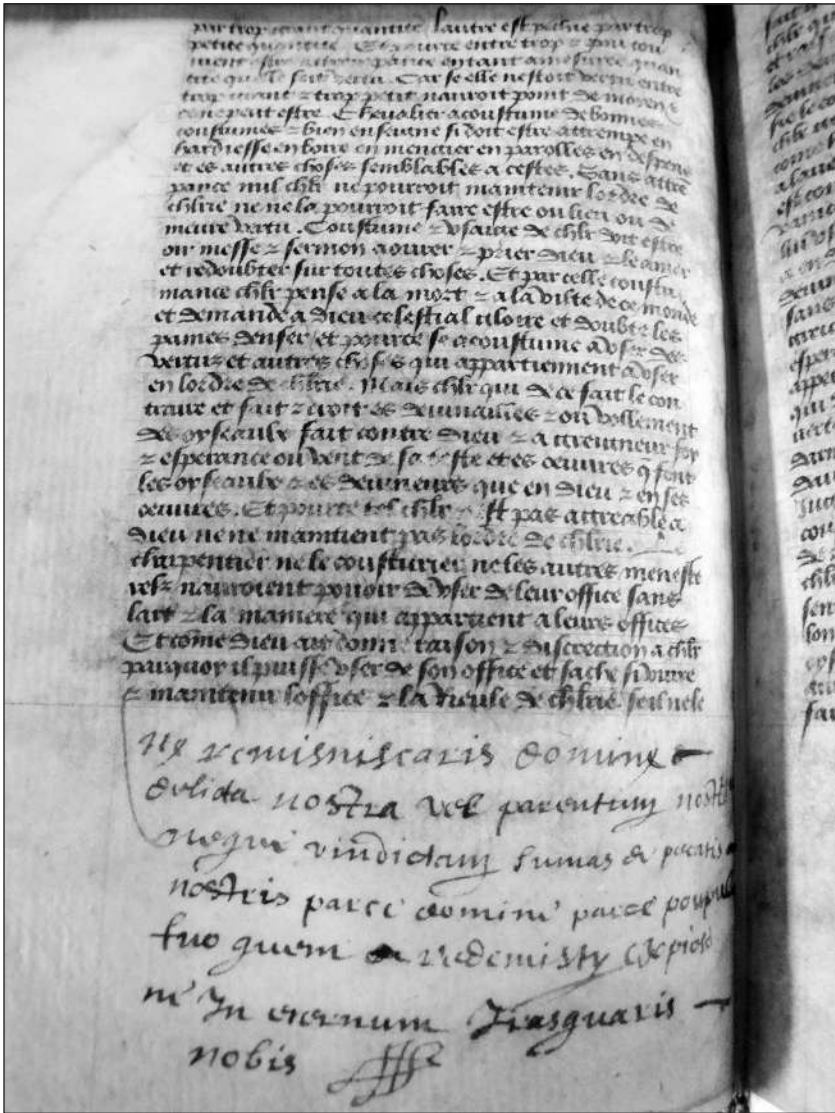 par trop grant quantite lautre est pechie par trop
petite quantite Et pource entre trop & pou con
vient estre attrempance en tant amesuree quan
tite quelle soit vertu. Car se elle nestoit vertu entre
trop grant & trop petit nauroit point de moyen &
ce ne peut estre. Chevalier acoustume de bonnes
coustumes & bien enseigne si doit estre attrempe en
hardiesse en boire en mengier en parolles en despens
et es autres choses semblables a cestes. Sans attrem
pance nul chlr ne pourroit maintenir lordre de
chlrie ne ne la pourroit faire estre ou lieu ou de
meure vertu. Coustume & usaige de chlr doit estre
oir messe & sermon aourer & prier dieu & le amer
et redoubter sur toutes choses. Et par celle coustu
mance chlr pense a la mort & a la vilte de ce monde
et demande a dieu celestial gloire et doubte les
paines denfer, et pource se acoustume a user des
vertuz et autres choses qui appartiennent a user
en lordre de chlrie. Mais chlr qui de ce fait le con
traire et fait & croit es devinailles & ou vollement
des oyseaulx fait contre dieu & a greigneur foy
& esperance ou vent de sa teste et es oeuvres q font
les oyseaulx & es devineurs que en dieu & en ses
oeuvres. Et pource tel chlr nest pas agreable a
dieu ne ne maintient pas lordre de chlrie. Le
charpentier ne le cousturier ne les autres menestr
relz nauroient pouoir de user de leur office sans
lart & la maniere qui appartient a leurs offices
Et come dieu ait donne raison & discrection a chlr
parquoy il puisse user de son office et sache si vivre
& maintenir loffice & la rieule de chlrie seil ne le
Ne remisniscaris domine
delicta nostra vel parentum nostr
neque vindictam sumas de pecatis
nostris parce domine parce poupul
tuo quem redemisty
ne In eternum Irasquaris
nobis